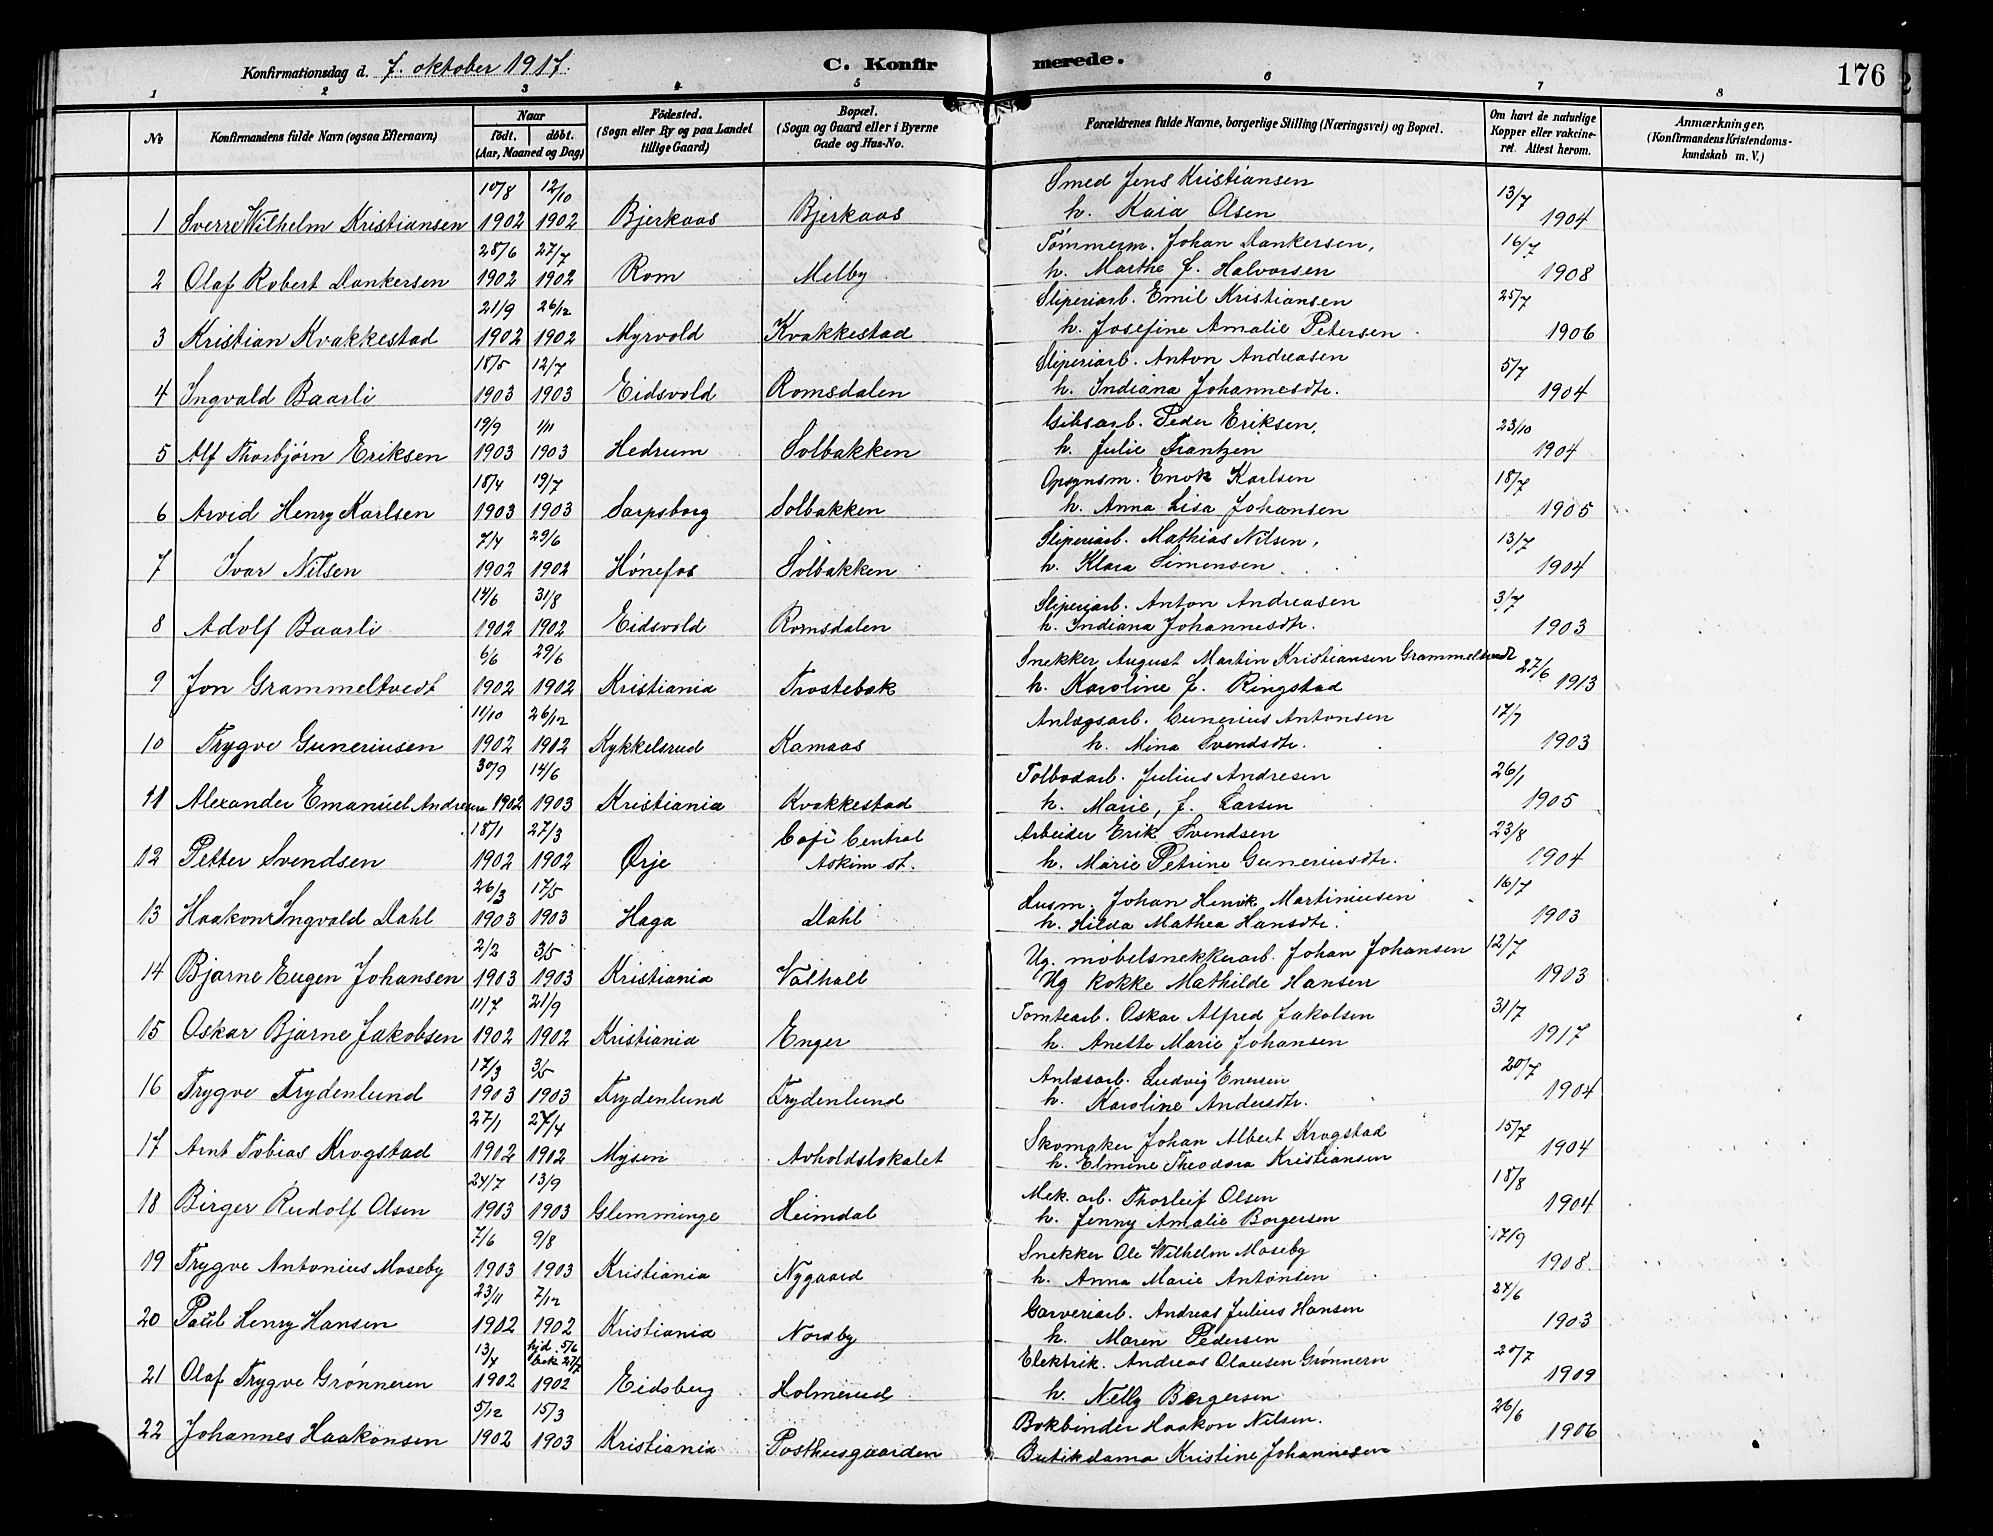 Konfirmationsdag d. 7. oktober 1917. C. Konfirmerede. 176
1 2 3 4 5 6 7 8
No Konfirmandens fulde Navn (ogsaa Efternavn) Naar födt. döbt. (Aar, Maaned og Dag) Födested. (Sogn eller By og paa Landet tillige Gaard) Bopæl. (Sogn og Gaard eller i Byerne Gade og Hus-No. Forældrenes fulde Navne, borgerlige Stilling (Næringsvei) og Bopæl. Om havt de naturlige Kopper eller vakcineret. Attest herom. Anmærkninger. (Konfirmandens Kristendomskundskab m. V.)
10/8 12/10 Smed Jens Kristiansen 13/7
1 Sverre Wilhelm Kristiansen 1902 1902 Bjerkaas Bjerkaas h. Kaia Olsen 1904
28/6 27/7 Tømmerm. Johan Dankersen, 16/7
2 Olaf Robert Dankersen 1902 1902 Rom Melby h. Marthe f. Halvorsen 1908
21/9 26/12 Sliperiarb. Emil Kristiansen 25/7
3 Kristian Kvakkestad 1902 1902 Myrvold Kvakkestad h. Josefine Amalie Petersen 1906
18/5 12/7 Sliperiarb. Anton Andreasen 5/7
4 Ingvald Baarli 1903 1903 Eidsvold Romsdalen h. Indiana Johannesdtr. 1904
19/9 1/11 Gibsarb. Peder Eriksen, 23/10
5 Alf Thorbjørn Eriksen 1903 1903 Hedrum Solbakken h. Julie Frantzen 1904
18/4 19/7 Opsynsm. Enok Karlsen 18/7
6 Arvid Henry Karlsen 1903 1903 Sarpsborg Solbakken h. Anna Lisa Johansen 1905
7/4 29/6 Sliperiarb. Mathias Nilsen, 13/7
7 Ivar Nilsen 1902 1902 Hønefos Solbakken h. Klara Simensen 1904
14/6 31/8 Sliperiarb. Anton Andreasen 3/7
8 Adolf Baarli 1902 1902 Eidsvold Romsdalen h. Indiana Johannesdtr. 1903
6/6 29/6 Snekker August Martin Kristiansen Grammeltvedt 27/6
9 Jon Grammeltvedt 1902 1902 Kristiania Trostebak h. Karoline f. Ringstad 1913
11/10 26/12 Anlægsarb. Gunerius Antonsen 17/7
10 Trygve Guneriusen 1902 1902 Kykkelsrud Kamaas h. Mina Svendsdtr. 1903
30/9 14/6 Tolbodarb. Julius Andresen 26/1
11 Alexander Emanuel Andresen 1902 1903 Kristiania Kvakkestad h. Marie, f. Larsen 1905
18/1 27/3 Cafi Central Arbeider Erik Svendsen 23/8
12 Petter Svendsen 1902 1902 Ørje Askim st. h. Marie Petrine Guneriusdtr. 1904
26/3 17/5 Husm. Johan Henrik Martiniusen 16/7
13 Haakon Ingvald Dahl 1903 1903 Haga Dahl h. Hilda Mathea Hansdtr. 1903
2/2 3/5 Ug. møbelsnekkerarb. Johan Johansen 12/7
14 Bjarne Eugen Johansen 1903 1903 Kristiania Valhall Ug kokke Mathilde Hansen 1903
11/7 21/9 Tomtearb. Oskar Alfred Jakobsen 31/7
15 Oskar Bjarne Jakobsen 1902 1902 Kristiania Enger h. Anette Marie Johansen 1917
17/3 3/5 Anlæsarb. Ludvig Enersen 20/7
16 Trygve Frydenlund 1903 1903 Frydenlund Frydenlund h. Karoline Andersdtr. 1904
27/1 27/4 Skomaker Johan Albert Krogstad 15/7
17 Arnt Tobias Krogstad 1902 1902 Mysen Avholdslokalet h. Elmine Theodora Kristiansen 1904
24/7 13/9 Mek. arb. Thorleif Olsen 18/8
18 Birger Rudolf Olsen 1903 1903 Glemminge Heimdal h. Jenny Amalie Borgersen 1904
7/6 9/8 Snekker Ole Wilhelm Moseby 17/9
19 Trygve Antonius Moseby 1903 1903 Kristiania Nygaard h. Anna Marie Antonsen 1908
23/11 7/12 Garveriarb. Andreas Julius Hansen 24/6
20 Paul Henry Hansen 1902 1902 Kristiania Nordby h. Maren Pedersen 1903
13/4 hjd. 5/6 bek 27/7 Elektrik. Andreas Olausen Grønnern 20/7
21 Olaf Trygve Grønneren 1902 1902 Eidsberg Holmerud h. Nelly Borgersen 1909
5/12 15/3 Bokbinder Haakon Nilsen. 26/6
22 Johannes Haakonsen 1902 1903 Kristiania Posthusgaarden Butikdama Kristine Johannesen 1906